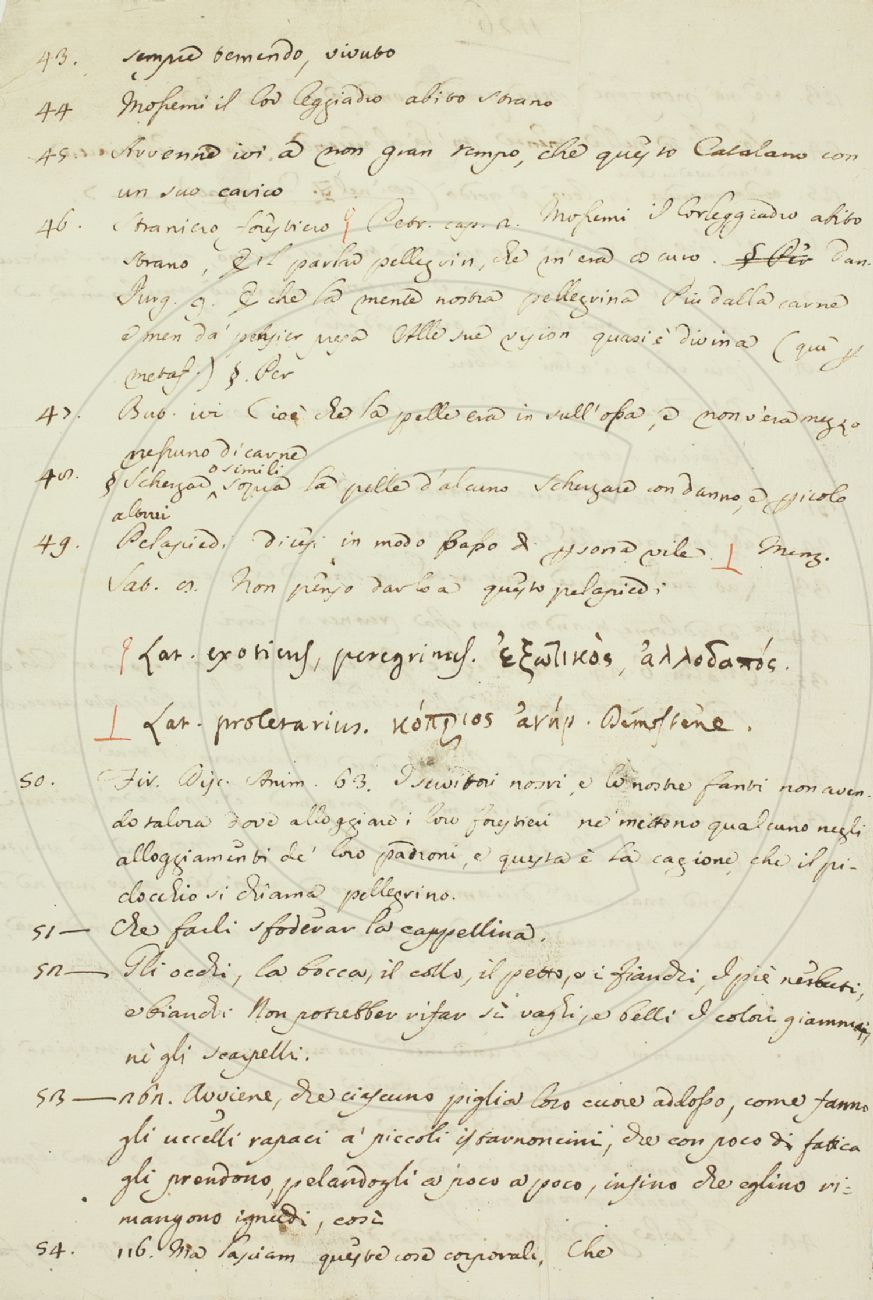 43. sempre temendo, vivuto
44 Mossemi il lor leggiadro abito strano
45. Avvenne ivi a non gran tempo, che questo Catalano con
un suo carico
46. Straniero, forestiero Petr. cap. 2. Mossemi il lor leggiadro abito
strano, E il parlar pellegrin, che m'era oscuro. § Per Dan.
Purg. 9. E che la mente nostra pellegrina Più dalla carne
e men da' pensier presa Alle sue vision quasi è divina (quì p
metaf.) §. Per
47. Bub. ivi Cioè che la pelle era in sull'ossa, e non v'era mezzo
nessuno di carne
48. § Scherzare o simili sopra la pelle d'alcuno Scherzare con danno, e pericolo
altrui
49. Pelapiedi dicesi in modo basso di psona vile. ⊥ Menz.
Sat. 8. Non penso darlo a questo pelapiedi
Lat. exoticus, peregrinus. ἐξωτικὸς, ἀλλοδαπός.
⊥ Lat. proletarius. κόπριος ἀνήρ. Demostene.
50. Fir. Disc. Anim. 63. I servitori nostri, e le nostre fanti non aven-
do talora dove alloggiare i loro forestieri ne mettono qualcuno negli
alloggiamenti de' loro padroni, e questa è la cagione, che il pi-
docchio si chiama pellegrino.
51 — Che farli sfoderar la cappellina.
52 — Gli occhi, la bocca, il collo, il petto, e i fianchi, I piè nerbuti,
e bianchi Non potrebber rifar sì vaghi, e belli I colori giammai,
nè gli scarpelli.
53 — 262. Avviene, che ciascuno piglia loro cuore addosso, come fanno
gli uccelli rapaci a' piccoli istarnoncini, che con poco di fatica
gli prendono, pelandogli a poco a poco, insino che eglino ri-
mangono ignudi, così
54. 116. Ma lasciam queste cose corporali, Che